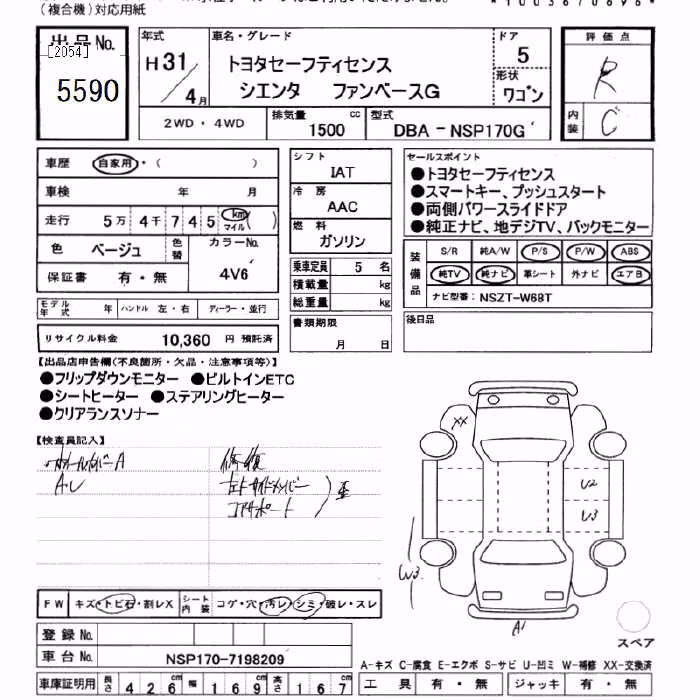 (複合機)対応用紙
出品No. 年式 車名・グレード ドア 評価点
[2054] H31 トヨタセーフティセンス 5 R
5590 4月 シエンタ ファンベースG 形状 ワゴン
2WD・4WD 排気量 1500 cc 型式 DBA-NSP170G 内装 C
車歴 自家用・( )
車検 年 月
走行 5万4千745 km マイル ( )
色 ベージュ 色替 カラーNo. 4V6
保証書 有・無
モデル年式 年 ハンドル 左・右 ディーラー・並行
リサイクル料金 10,360 円 預託済
シフト IAT
冷房 AAC
燃料 ガソリン
乗車定員 5 名
積載量 kg
総重量 kg
書類期限 月 日
セールスポイント
●トヨタセーフティセンス
●スマートキー、プッシュスタート
●両側パワースライドドア
●純正ナビ、地デジTV、バックモニター
装備品 S/R 純A/W P/S P/W ABS
純TV 純ナビ 革シート 外ナビ エアB
ナビ型番: NSZT-W68T
後日品
【出品店申告欄(不良箇所・欠品・注意事項等)】
●フリップダウンモニター ●ビルトインETC
●シートヒーター ●ステアリングヒーター
●クリアランスソナー
【検査員記入】
修復
コアサポート
XX
U2
U3
W3
A1
スペア
FW キズ・トビ石・割レX シート内装 コゲ・穴・汚レ・シミ・破レ・スレ
登録No.
車台No. NSP170-7198209
車庫証明用 長さ 426 cm 幅 169 cm 高さ 167 cm
A-キズ C-腐食 E-エクボ S-サビ U-凹ミ W-補修 XX-交換済
工具 有・無 ジャッキ 有・無